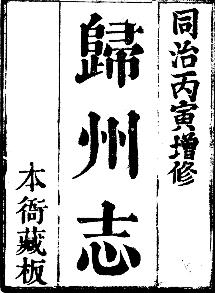 同治丙寅增修
歸州志
本衙藏板